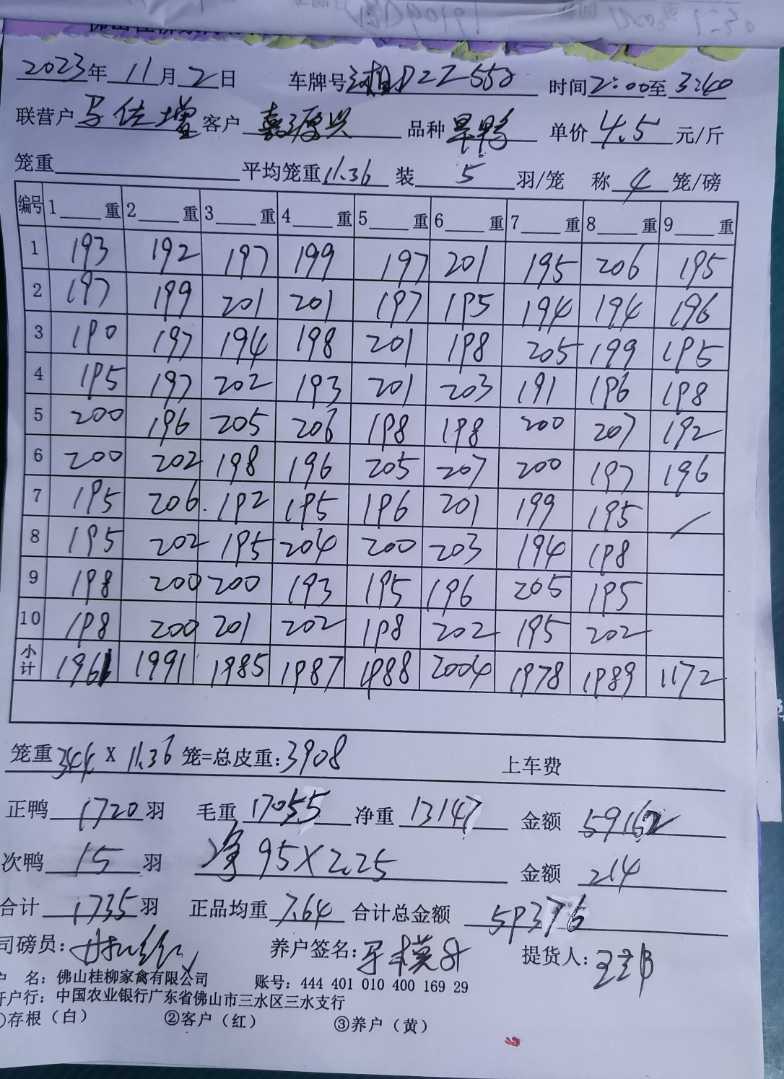 2023年 11月2日 车牌号 湘DZZ558 时间2:00至3:40
联营户 客户 嘉源兴 品种 旱鸭 单价 4.5 元/斤
笼重 平均笼重11.36 装 5 羽/笼 称 4 笼/磅
编号 1 重 2 重 3 重 4 重 5 重 6 重 7 重 8 重 9 重
1 193 192 197 199 197 201 195 206 195
2 197 199 201 201 197 195 194 194 196
3 190 197 194 198 201 198 205 199 195
4 195 197 202 193 201 203 191 196 198
5 200 196 205 206 198 198 200 207 192
6 200 202 198 196 205 207 200 197 196
7 195 206 192 195 196 201 199 195
8 195 202 195 204 200 203 194 198
9 198 200 200 193 195 196 205 195
10 198 200 201 202 198 202 195 202
小计 1961 1991 1985 1987 1988 2004 1978 1989 1172
笼重344 X 11.36 笼=总皮重:3908 上车费
正鸭 1720 羽 毛重 17055 净重 13147 金额 59162
次鸭 15 羽 净 95X2.25 金额 214
合计 1735 羽 正品均重 7.64 合计总金额 59376
司磅员: 养户签名: 提货人:
户 名: 佛山桂柳家禽有限公司 账号: 444 401 010 400 169 29
开户行: 中国农业银行广东省佛山市三水区三水支行
①存根（白） ②客户（红） ③养户（黄）